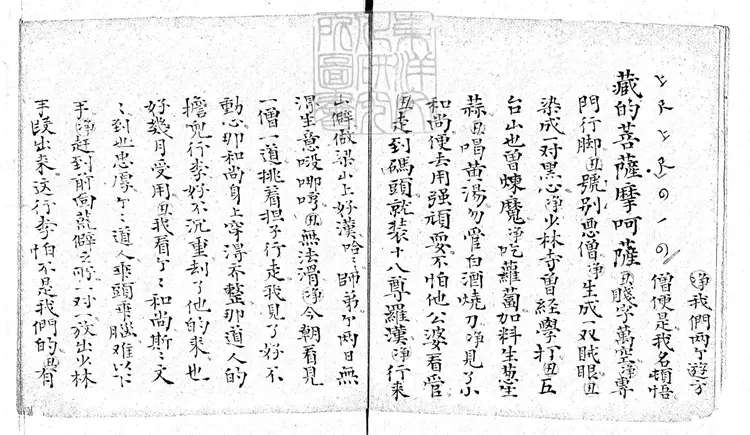 東洋文
化研究
所圖書
淨我們两个遊方
僧便是我名頓悟
藏的菩薩摩呵薩丑賤字萬空淨專
門行脚丑號别悪僧淨生成一双贼眼丑
染成一对黑心淨少林寺曽经學打丑五
台山也曽煉魔淨吃蘿蔔加料生葱
蒜丑唱黄湯勿管白酒燒刀淨見了小
和尚便去用强頑耍不怕他公婆看管
丑走到碼頭就装十八尊羅漢淨行来
山僻做梁山上好漢哈〻師弟个两日無
渭生意吸哼丑無法渭淨今朝看見
一僧一道挑着担子行走我見了好不
動心那和尚身上穿得齐整那道人的
擔行李好不沉重刦了他的来也
好幾月受用丑我看个〻和尚斯〻文
〻到也忠厚个〻道人乖頭乖腦难以下
手淨赶到前面荒僻之所一对一放出少林
手段出来送行李怕不是我們的丑有